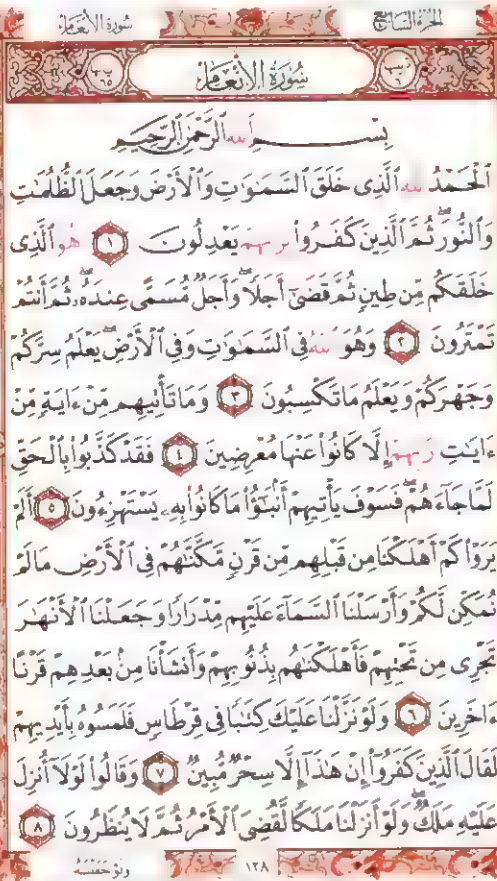 الجزء السابع سورة الأنعام
سُورَةُ الأَنْعَامِ
بِسْمِ اللهِ الرَّحْمَٰنِ الرَّحِيمِ
ٱلْحَمْدُ لِلَّهِ ٱلَّذِى خَلَقَ ٱلسَّمَٰوَٰتِ وَٱلْأَرْضَ وَجَعَلَ ٱلظُّلُمَٰتِ
وَٱلنُّورَ ۖ ثُمَّ ٱلَّذِينَ كَفَرُوا۟ بِرَبِّهِمْ يَعْدِلُونَ ١ هُوَ ٱلَّذِى
خَلَقَكُم مِّن طِينٍ ثُمَّ قَضَىٰٓ أَجَلًا ۖ وَأَجَلٌ مُّسَمًّى عِندَهُۥ ۖ ثُمَّ أَنتُمْ
تَمْتَرُونَ ٢ وَهُوَ ٱللَّهُ فِى ٱلسَّمَٰوَٰتِ وَفِى ٱلْأَرْضِ ۖ يَعْلَمُ سِرَّكُمْ
وَجَهْرَكُمْ وَيَعْلَمُ مَا تَكْسِبُونَ ٣ وَمَا تَأْتِيهِم مِّنْ ءَايَةٍ مِّنْ
ءَايَٰتِ رَبِّهِمْ إِلَّا كَانُوا۟ عَنْهَا مُعْرِضِينَ ٤ فَقَدْ كَذَّبُوا۟ بِٱلْحَقِّ
لَمَّا جَآءَهُمْ ۖ فَسَوْفَ يَأْتِيهِمْ أَنۢبَٰٓؤُا۟ مَا كَانُوا۟ بِهِۦ يَسْتَهْزِءُونَ ٥ أَلَمْ
يَرَوْا۟ كَمْ أَهْلَكْنَا مِن قَبْلِهِم مِّن قَرْنٍ مَّكَّنَّٰهُمْ فِى ٱلْأَرْضِ مَا لَمْ
نُمَكِّن لَّكُمْ وَأَرْسَلْنَا ٱلسَّمَآءَ عَلَيْهِم مِّدْرَارًا وَجَعَلْنَا ٱلْأَنْهَٰرَ
تَجْرِى مِن تَحْتِهِمْ فَأَهْلَكْنَٰهُم بِذُنُوبِهِمْ وَأَنشَأْنَا مِنۢ بَعْدِهِمْ قَرْنًا
ءَاخَرِينَ ٦ وَلَوْ نَزَّلْنَا عَلَيْكَ كِتَٰبًا فِى قِرْطَاسٍ فَلَمَسُوهُ بِأَيْدِيهِمْ
لَقَالَ ٱلَّذِينَ كَفَرُوٓا۟ إِنْ هَٰذَآ إِلَّا سِحْرٌ مُّبِينٌ ٧ وَقَالُوا۟ لَوْلَآ أُنزِلَ
عَلَيْهِ مَلَكٌ ۖ وَلَوْ أَنزَلْنَا مَلَكًا لَّقُضِىَ ٱلْأَمْرُ ثُمَّ لَا يُنظَرُونَ ٨
١٢٨